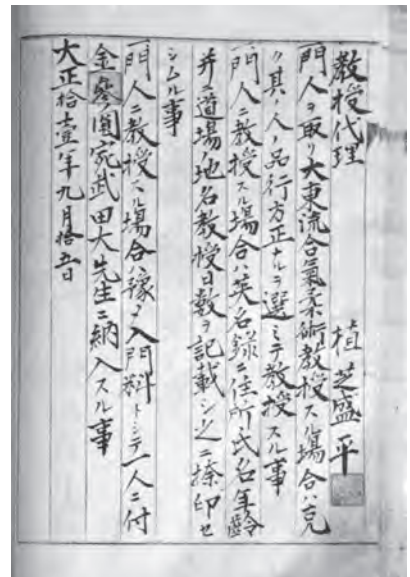 教授代理
植芝盛平
一門人ヲ取リ大東流合氣柔術教授スル場合ハ克
ク其ノ人ノ品行方正ナルヲ選ミテ教授スル事
一門人ニ教授スル場合ハ英名録ニ住所氏名年齢
并ニ道場ノ地名教授日数ヲ記載シ之ニ捺印セ
シムル事
一門人ニ教授スル場合ハ豫メ入門料トシテ一人ニ付
金參圓宛武田大先生ニ納入スル事
大正拾壹年九月拾五日